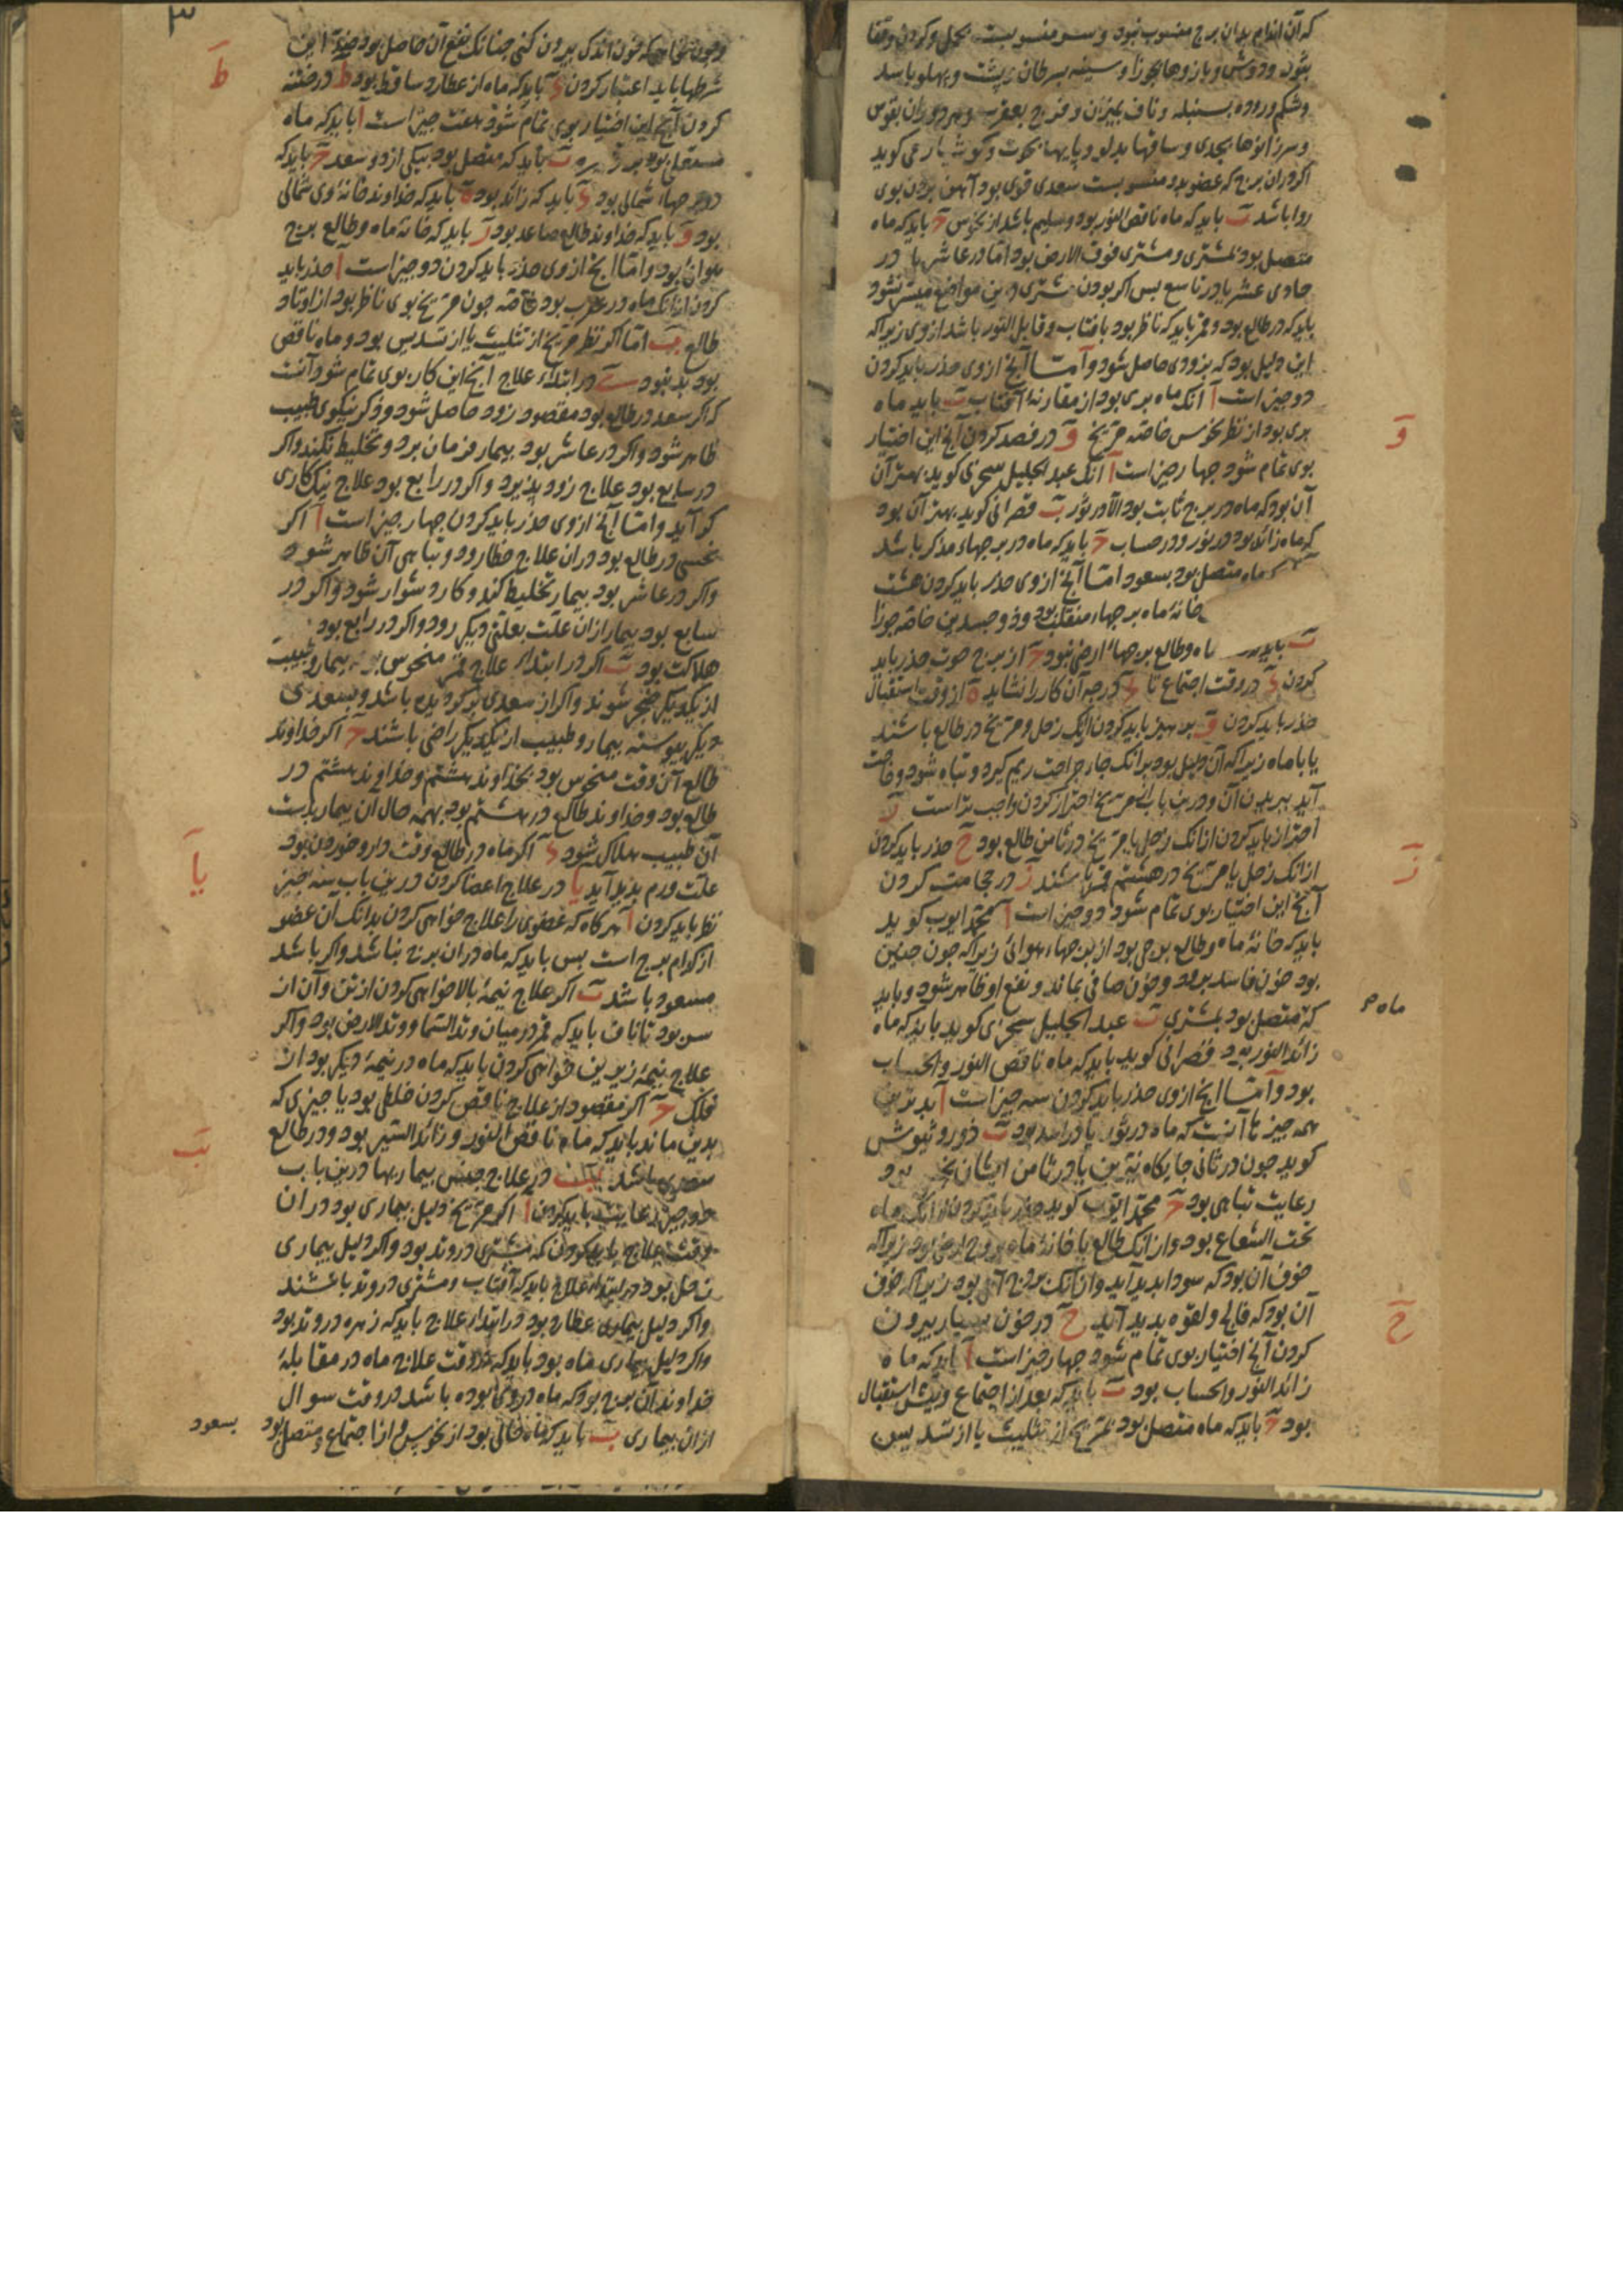 که آن اندام بدان برج منسوب نبود و سر منسوبست بحمل و کردن وقفا
بثور و دوش و بازوها بجوزا و سینه بسرطان و پشت و پهلو باسد
و شکم و روده بسنبله و ناف بمیزان و فرج بعقرب و هر دو ران بقوس
و سر زانوها بجدی و ساقها بدلو و پایها بحوت و کوشیار می کوید
اکر دران برج که عضو بدو منسوبست سعدی قوی بود آهن بردن بوی
روا باشد ب باید که ماه ناقص النور بود و سلیم باشد از نحوس ج باید که ماه
متصل بود بمشتری و مشتری فوق الارض بود اما در عاشر یا در
حادی عشر یا در تاسع بس اکر بودن مشتری درین مواضع میسر نشود
باید که در طالع بود و قمر باید که ناظر بود بافتاب و قابل النور باشد از وی زیرا که
این دلیل بود که بزودی حاصل شود و امتا آنچ از وی حذر باید کردن
دو چیز است آ آنک ماه بری بود از مقارنه آفتاب ب باید ماه
بری بود از نظر نحوس خاصه مریخ و در فصد کردن آنچ این اختیار
بوی تمام شود چهار چیز است آ آنک عبد الجلیل سجزی کوید بهتر آن
آن بود که ماه در برج ثابت بود الا در ثور ب قصرانی کوید بهتر آن بود
که ماه زائد بود در نور و در حساب ج باید که ماه در برجهاء مذکر باشد
ماه متصل بود بسعود امتا آنچ از وی حذر باید کردن هشت
خانه ماه برجهاء منقلب بود و ذو جسدین خاصه جوزا
ب باید ماه و طالع برجهاء ارضی نبود ج از برج حوت حذر باید
کردن د در وقت اجتماع تا درجه آن کار را نشاید ه از وقت استقبال
حذر باید کردن و پرهیز باید کردن آنک زحل و مریخ در طالع باشند
یا با ماه زیرا که آن دلیل بود برانک جاء جراحت ریم کیرد و تباه شود و حاجت
آید ببریدن آن و درین باب از مریخ احتراز کردن واجب تر است ز
احتراز باید کردن ازانک زحل یا مریخ در ثامن طالع بود ح حذر باید کردن
ازانک زحل یا مریخ در هشتم قمر باشند ز در حجامت کردن
آنچ این اختیار بوی تمام شود دو چیز است آ محمد ایوب کوید
باید که خانه ماه و طالع برجی بود از برجهاء هوائی زیرا که چون چنین
بود خون فاسد برود و خون صافی بماند و نفع او ظاهر شود و باید
که متصل بود بمشتری ب عبد الجلیل سجزی کوید باید که ماه
زائد النور بود قصرانی کوید باید که ماه ناقص النور و الحساب
بود و امتا آنچ از وی حذر باید کردن سه چیز است آ بدترین
همه چیزها آنست که ماه در ثور یا در اسد بود ب ذوروثیوش
کوید چون در ثانی جایکاه نیرین یا در ثامن ایشان
رعایت تباهی بود ج محمد ایوب کوید حذر باید کردن ازانک ماه
تحت الشعاع بود و ازانک طالع یا خانه ماه بروج ارضی بود زیرا که
خوف آن بود که سودا بدید آید و ازانک برج آبی بود زیرا که خوف
آن بود که فالج و لقوه بدید آید ح در خون بسیار بیرون
کردن آنچ اختیار بوی تمام شود چهار چیز است آ باید که ماه
زائد النور و الحساب بود ب باید که بعد از اجتماع و پیش استقبال
بود ج باید که ماه متصل بود بمریخ از تثلیث یا از تسدیس
و
ز
ماه
ح
۳
و چون خواهی که خون اندک بیرون کنی چنانک نفع آن حاصل بود ضد این
شرطها باید اعتبار کردن د باید که ماه از عطارد ساقط بود ط در ختنه
کردن آنچ این اختیار بوی تمام شود هفت چیز است آ باید که ماه
متصل بود بزهره ب باید که متصل بود بیکی از دو سعد ج باید که
در برجهاء شمالی بود د باید که زائد بود ه باید که خداوند خانه وی شمالی
بود و باید که خداوند طالع صاعد بود ز باید که خانه ماه و طالع برج
هوائی بود و امتا آنچ از وی حذر باید کردن دو چیز است آ حذر باید
کردن ازانک ماه در عقرب بود خاصه چون مریخ بوی ناظر بود از اوتاد
طالع ب اما اکر نظر مریخ از تثلیث یا از تسدیس بود و ماه ناقص
بود بد نبود ی در ابتداء علاج آنچ این کار بوی تمام شود آنست
که اکر سعد در طالع بود مقصود زود حاصل شود و ذکر نیکوی طبیب
ظاهر شود و اکر در عاشر بود بیمار فرمان برد و تخلیط نکند و اکر
در سابع بود علاج زود پذیرد و اکر در رابع بود علاج نیک کاری
کر آید و امتا آنچ از وی حذر باید کردن چهار چیز است آ اکر
نحسی در طالع بود دران علاج خطا رود و تباهی آن ظاهر شود
و اکر در عاشر بود بیمار تخلیط کند و کار دشوار شود و اکر در
سابع بود بیمار ازان علت بعلتی دیکر رود و اکر در رابع بود
هلاکت بود ب اکر در ابتداء علاج قمر منحوس بود بیمار و طبیب
از یکدیکر ضجر شوند و اکر از سعدی برکردیده باشد و بسعدی
دیکر پیوسته بیمار و طبیب از یکدیکر راضی باشند ج اکر خداوند
طالع آن وقت منحوس بود بخداوند هشتم و خداوند هشتم در
طالع بود و خداوند طالع در هشتم بود بهمه حال آن بیمار بدست
آن طبیب هلاک شود د اکر ماه در طالع وقت دارو خوردن بود
علت ورم بدید آید یا در علاج اعضا کردن درین باب سه چیز
نظر باید کردن آ هر کاه که عضوی را علاج خواهی کردن بدانک آن عضو
از کدام برج است بس باید که ماه دران برج نباشد و اکر باشد
مسعود باشد ب اکر علاج نیمه بالا خواهی کردن از تن و آن از
سر بود تا ناف باید که قمر در میان وتد السما و وتد الارض بود و اکر
علاج نیمه زیرین خواهی کردن باید که ماه در نیمه دیکر بود از
فلک ج اکر مقصود از علاج ناقص کردن خلطی بود یا چیزی که
بدین ماند باید که ماه ناقص النور و زائد السیر بود و در طالع
سعدی باشد یب در علاج جنس بیماریها درین باب
دو چیز رعایت باید کردن آ اکر مریخ دلیل بیماری بود دران
وقت علاج باید کردن که مشتری در وتد بود و اکر دلیل بیماری
زحل بود در ابتداء علاج باید که آفتاب و مشتری در وتد باشند
و اکر دلیل بیماری عطارد بود در ابتداء علاج باید که زهره در وتد بود
و اکر دلیل بیماری ماه بود باید که در وقت علاج ماه در مقابله
خداوند آن برج بود که ماه در وی بوده باشد در وقت سوال
ازان بیماری ب باید که ماه خالی بود از نحوس و از اجتماع و متصل بود بسعود
ط
یا
یب